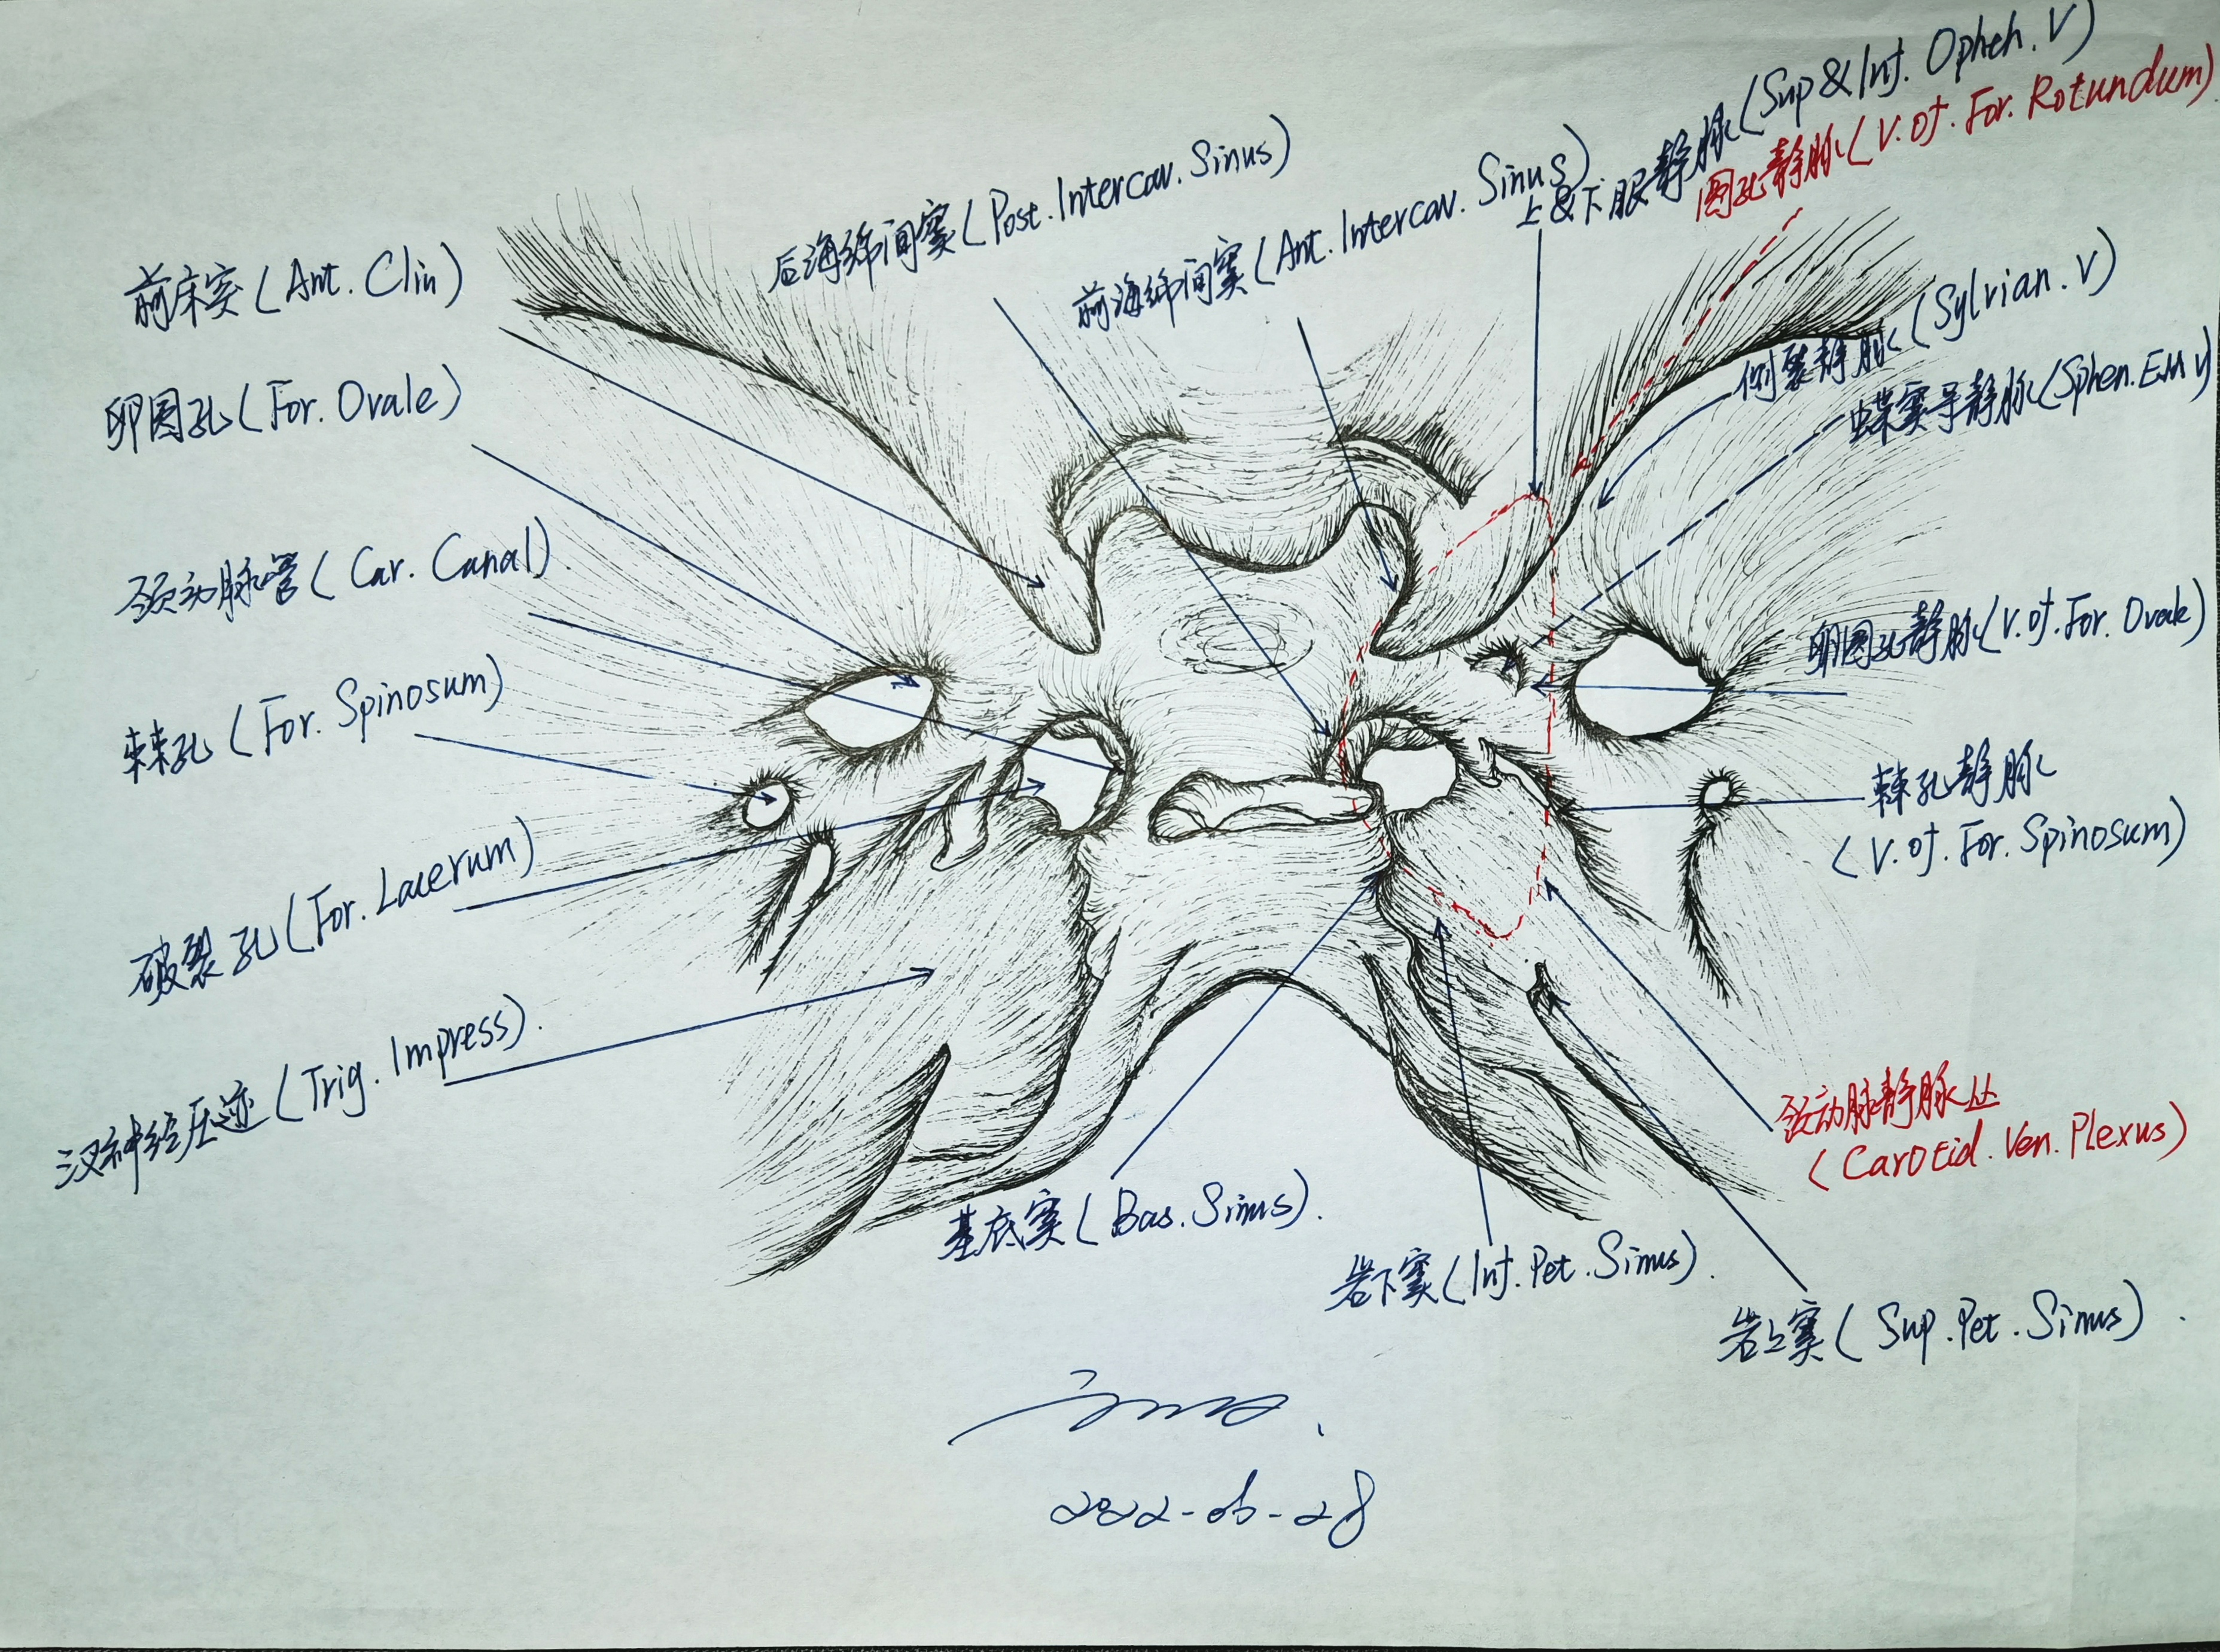 上&下眼静脉(Sup&Inf. Ophth. V)
圆孔静脉(V.of.For.Rotundum)
后海绵间窦(Post.Intercav.Sinus)
前海绵间窦(Ant.Intercav.Sinus)
前床突(Ant. Clin)
侧裂静脉(Sylvian.V)
卵圆孔(For. Ovale)
蝶窦导静脉(Sphen.EM V)
颈动脉管(Car. Canal)
卵圆孔静脉(V.of.For. Ovale)
棘孔(For. Spinosum)
棘孔静脉
(V.of.For.Spinosum)
破裂孔(For. Lacerum)
汉神经压迹(Trig. Impress).
颈动脉静脉丛
(Carotid.Ven.Plexus)
基底窦(Bas.Sinus).
岩下窦(Inf.Pet.Sinus).
岩上窦(Sup.Pet.Sinus).
2022-06-28